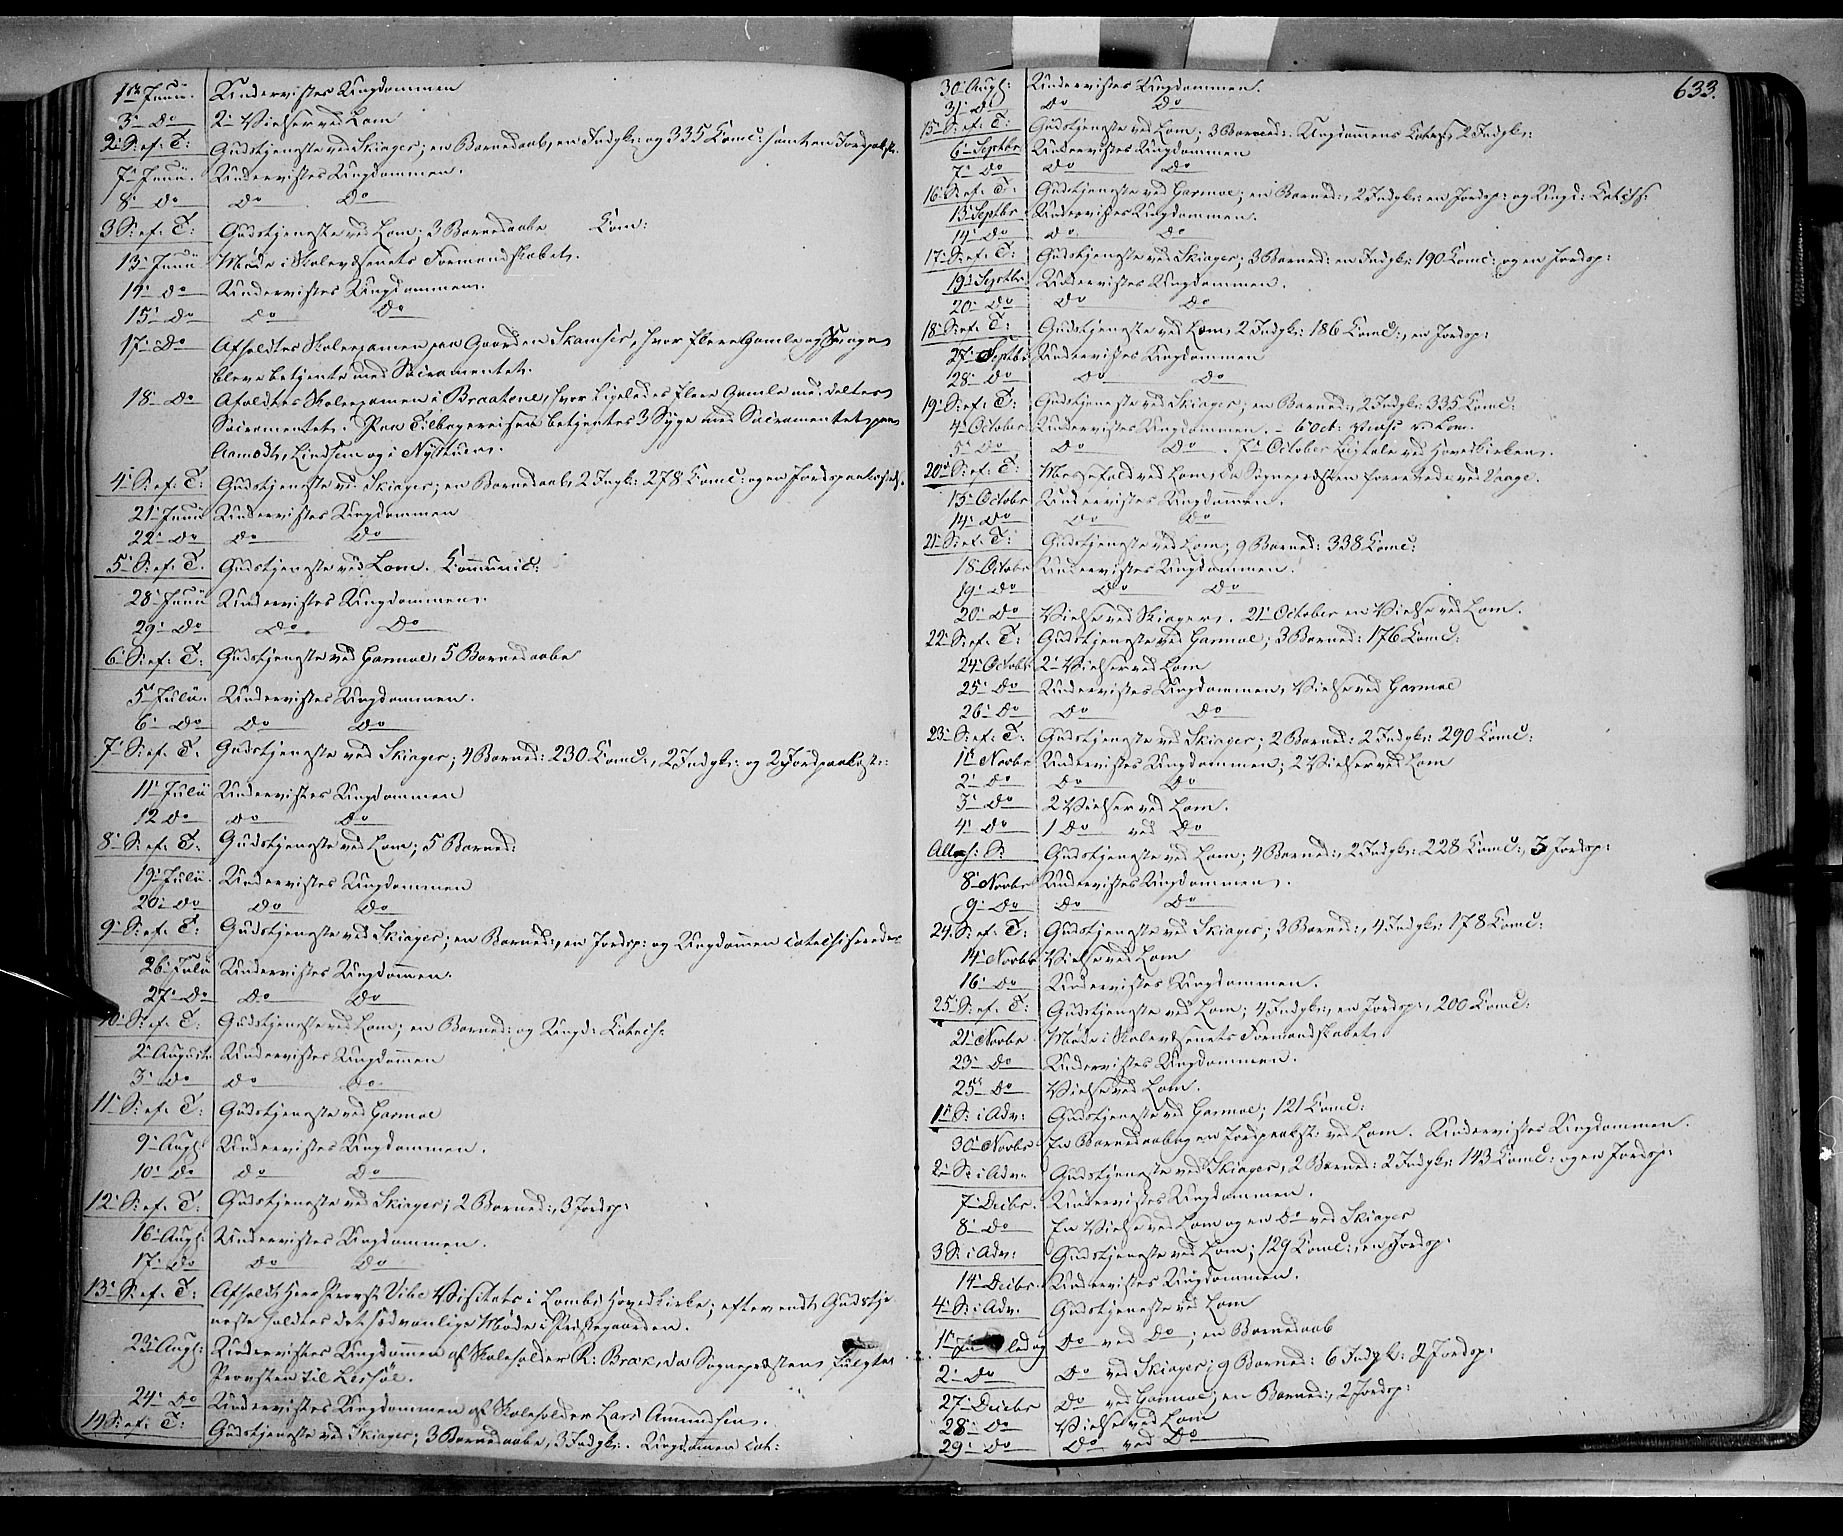 1ste Junii. Underviistes Ungdommen
3' Do 2 Vielser ved Lom
2' S: ef: T: Gudstjeneste ved Skiager; en Barnedaab, en Indgk: og 335 Comc: samt en Jordpaak:
7' Junii. Underviistes Ungdommen.
8' Do Do Do
3 S: ef: T: Gudstjeneste ved Lom; 3 Barnedaabe Com:
13' Junii Møde i Skolevæsenets Formandskabet.
14' Do Underviistes Ungdommen.
15' Do Do Do
17' Do Afholdtes Skoleexamen paa Gaarden Skamser, hvor flere Gamle og Svage
bleve betjente med Sacramentet.
18' Do Afoldtes Skoleexamen i Braatene, hvor ligeledes flere Gamle meddeltes
Sacramentet. Paa Tilbagereisen betjentes 3 Syge med Sacramentet paa
Aamodt, Lindsem og i Nystuen.
4' S: ef: T: Gudstjeneste ved Skiager; en Barnedaab, 2 Ingk: 278 Comc: og en Jordpaakastelse.
21' Junii Underviistes Ungdommen
22' Do Do Do
5' S: ef: T. Gudstjeneste ved Lom. Communic:
28' Junii Underviistes Ungdommen.
29' Do Do Do
6' S: ef: T: Gudstjeneste ved Garmoe, 5 Barnedaabe
5' Julii. Underviistes Ungdommen.
6' Do Do Do
7' S: ef: T: Gudstjeneste ved Skiager; 4 Barned: 230 Comc:, 2 Indgk: og 2 Jordpaakast:
11' Julii Underviistes Ungdommen
12 Do Do Do
8' S: ef: T: Gudstjeneste ved Lom; 5 Barned:
19' Julii. Underviistes Ungdommen
20' Do Do Do
9' S: ef: T: Gudstjeneste ved Skiager; en Barned:, en Jordsp: og Ungdommen catechiseredes
26' Julii Underviistes Ungdommen.
27' Do Do Do
10' S: ef: T: Gudstjeneste ved Lom; en Barned: og Ungd: Catech:
2' Augusti Underviistes Ungdommen
3' Do Do Do
11' S: ef: T: Gudstjeneste ved Garmoe
9' Augs: Underviistes Ungdommen.
10' Do Do Do
12' S: ef: T: Gudstjeneste ved Skiager; 2 Barned:, 3 Jordsp:
16' Augs: Underviistes Ungdommen.
17' Do Do Do
13' S: ef: T: Afholdt Herr Provst Vibe Visitats i Lombs Hovedkirke; efter endt Gudstje-
neste holdtes det sædvanlige Møde i Præstegaarden.
23' Augs: Underviistes Ungdommen af Skoleholder R: Bræk, da Sognepræsten fulgte
Provsten til Lessøe.
24' Do Underviistes Ungdommen af Skoleholder Lars Amundsen.
14 S: ef: T: Gudstjeneste ved Skiager; 3 Barnedaabe, 3 Indgk:. Ungdommen cat:
633.
30' Augs: Underviistes Ungdommen.
31' Do Do Do
15' S: ef: T: Gudstjeneste ved Lom; 3 Barned:. Ungdommens Catech:, 2 Indgk:
6' Septbr Underviistes Ungdommen
7' Do Do Do
16' S: ef: T: Gudstjeneste ved Garmoe; en Barned:, 2 Indgk: en Jordsp: og Ungd: Catech:
13' Septbr. Underviistes Ungdommen.
14' Do Do Do
17' S: ef: T: Gudstjeneste ved Skiager; 3 Barned: en Indgk: 190 Comc: og en Jordsp:
19' Septbr. Underviistes Ungdommen.
20' Do Do Do
18' S: ef: T: Gudstjeneste ved Lom, 2 Indgk: 186 Comc:, en Jordsp:
27' Septbr Underviistes Ungdommen
28' Do Do Do
19' S: ef: T: Gudstjeneste ved Skiager; en Barned:, 2 Indgk: 335 Comc:
4' October Underviistes Ungdommen. - 6' Oct: Vielse ved Lom.
5' Do Do Do . 7' October Liigtale ved Hovedkirken.
20' S: ef: T: Messefald ved Lom, da Sognepræsten forrettede ved Vaage.
13' Octobr Underviistes Ungdommen.
14' Do Do Do
21' S: ef: T: Gudstjeneste ved Lom; 9 Barned: 338 Comc:
18' Octobr Underviistes Ungdommen.
19' Do Do Do
20' Do Vielse ved Skiager. 21' October en Vielse ved Lom.
22' S: ef: T: Gudstjeneste ved Garmoe; 3 Barned: 176 Comc:
24' Octobr 2 Vielser ved Lom
25' Do Underviistes Ungdommen, Vielse ved Garmoe
26' Do Do Do
23' S: ef: T: Gudstjeneste ved Skiager; 2 Barned: 2 Indgk: 290 Comc:
1ste Novbr Underviistes Ungdommen; 2 Vielser ved Lom
2' Do Do Do
3' Do 2 Vielser ved Lom.
4' Do 1 Do ved Do
Alleh: S: Gudstjeneste ved Lom; 4 Barned:, 2 Indgk: 228 Comc:, 3 Jordsp:
8' Novbr Underviistes Ungdommen.
9' Do Do Do
24. S: ef: T: Gudstjeneste ved Skiager; 3 Barned:, 4 Indgk: 178 Comc:
14' Novbr Vielse ved Lom
16' Do Underviistes Ungdommen.
25' S: ef: T: Gudstjeneste ved Lom; 4 Indgk:, en Jordsp:, 200 Comc:
21' Novbr Møde i Skolevæsenets Formandskabet.
23' Do Underviistes Ungdommen.
25' Do Vielse ved Lom.
1ste S: i Adv: Gudstjeneste ved Garmoe; 121 Comc:
30' Novbr En Barnedaab og en Jordpaakst: ved Lom. Underviistes Ungdommen.
2' S: i Adv: Gudstjeneste ved Skiager, 2 Barned: 2 Indgk: 143 Comc: og en Jordsp:
7' Decbr. Underviistes Ungdommen.
8' Do En Vielse ved Lom og en Do ved Skiager
3 S: i Adv: Gudstjeneste ved Lom; 129 Comc:, en Jordsp:
14' Decbr. Underviistes Ungdommen.
4' S: i Adv: Gudstjeneste ved Lom
1ste Juledag Do ved Do; en Barnedaab
2' Do Do ved Skiager; 9 Barned: 6 Indgk: 2 Jordsp:
27' Decbr Do ved Garmoe; en Barned:, 2 Jordsp:
28' Do Vielse ved Lom
29' Do Do ved Do